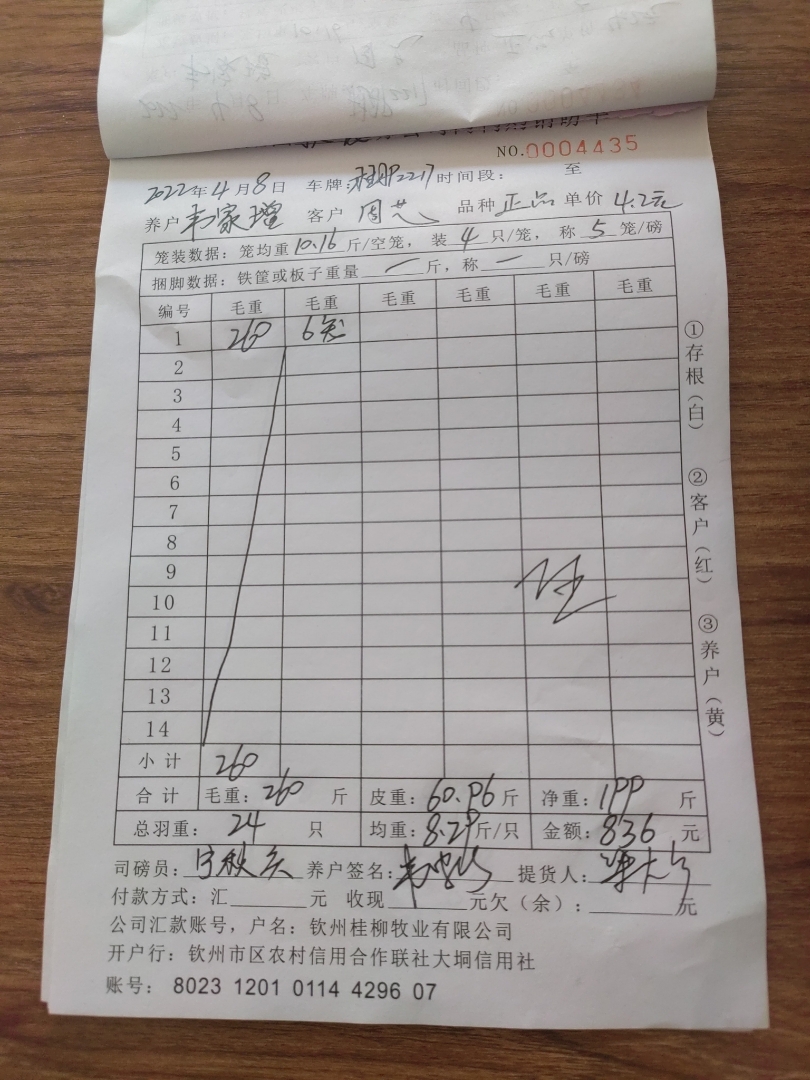 NO.0004435
2022年4月8日 车牌:桂N2217 时间段: 至
养户 韦家瑝 客户 周芯 品种 正品 单价 4.2元
笼装数据: 笼均重10.16斤/空笼, 装4只/笼, 称5笼/磅
捆脚数据: 铁筐或板子重量 一 斤, 称 一 只/磅
编号 毛重 毛重 毛重 毛重 毛重 毛重
1 260 6笼
2
3
4
5
6
7
8
9
10
11
12
13
14
小计 260
合计 毛重: 260 斤 皮重: 60.96斤 净重: 199 斤
总羽重: 24 只 均重: 8.29斤/只 金额: 836 元
司磅员: 养户签名: 提货人:
付款方式: 汇 元 收现 元欠(余): 元
公司汇款账号, 户名: 钦州桂柳牧业有限公司
开户行: 钦州市区农村信用合作联社大垌信用社
账号: 8023 1201 0114 4296 07
①存根(白)
②客户(红)
③养户(黄)